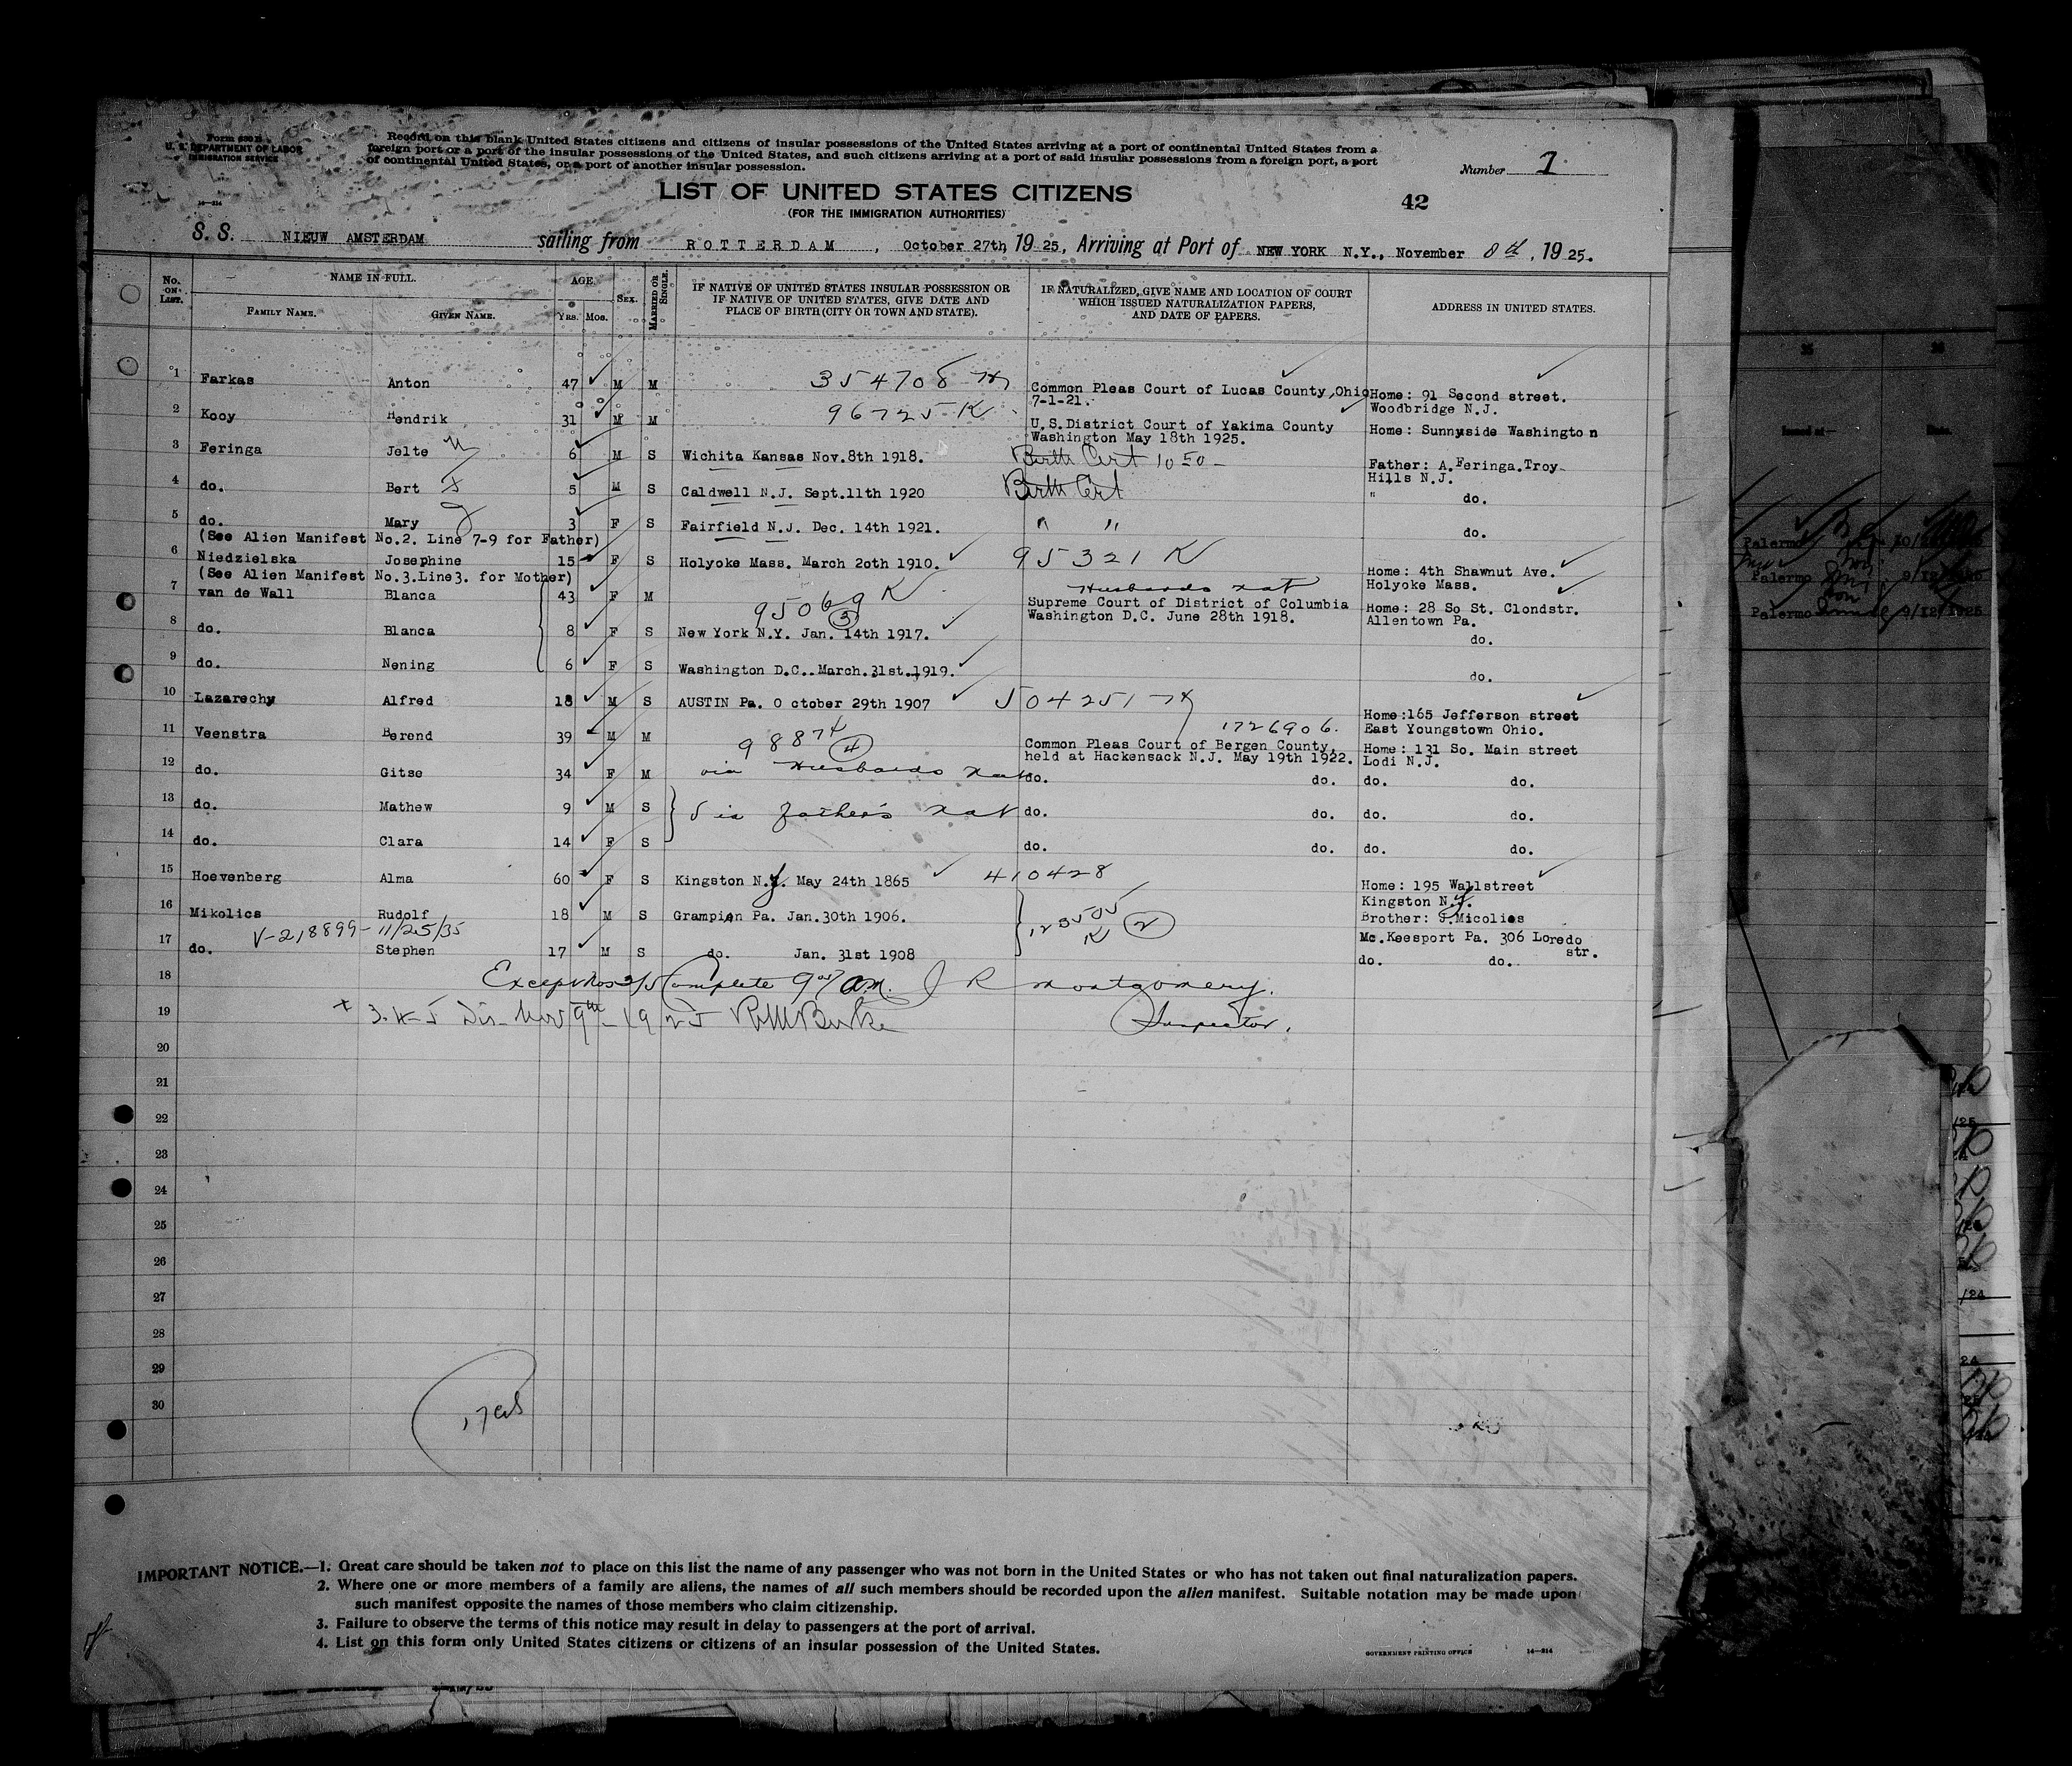 Form 630 B
U. S. DEPARTMENT OF LABOR
IMMIGRATION SERVICE
Record on this blank United States citizens and citizens of insular possessions of the United States arriving at a port of continental United States from a
foreign port or a port of the insular possessions of the United States, and such citizens arriving at a port of said insular possessions from a foreign port, a port
of continental United States, or a port of another insular possession.
Number 1
14—214
LIST OF UNITED STATES CITIZENS
(FOR THE IMMIGRATION AUTHORITIES)
42
S. S. NIEUW AMSTERDAM sailing from ROTTERDAM, October 27th, 1925, Arriving at Port of NEW YORK N.Y., November 8th, 1925.
No. ON LIST. NAME IN FULL. AGE. SEX. MARRIED OR SINGLE. IF NATIVE OF UNITED STATES INSULAR POSSESSION OR IF NATIVE OF UNITED STATES, GIVE DATE AND PLACE OF BIRTH (CITY OR TOWN AND STATE). IF NATURALIZED, GIVE NAME AND LOCATION OF COURT WHICH ISSUED NATURALIZATION PAPERS, AND DATE OF PAPERS. ADDRESS IN UNITED STATES.
FAMILY NAME. GIVEN NAME. Yrs. Mos.
1 Farkas Anton 47 M M 354708 Common Pleas Court of Lucas County, Ohio Home: 91 Second street.
7-1-21. Woodbridge N.J.
2 Kooy Hendrik 31 M M 96725 K U.S.District Court of Yakima County Home: Sunnyside Washington
Washington May 18th 1925.
3 Feringa Jelte 6 M S Wichita Kansas Nov.8th 1918. Birth Cert 1050- Father: A.Feringa.Troy-
Hills N.J.
4 do. Bert X 5 M S Caldwell N.J. Sept.11th 1920 Birth Cert " do.
5 do. Mary 3 F S Fairfield N.J. Dec. 14th 1921. " " do.
(See Alien Manifest No.2. Line 7-9 for Father)
6 Niedzielska Josephine 15 F S Holyoke Mass. March 2oth 1910. 95321 K Home: 4th Shawnut Ave.
Holyoke Mass.
(See Alien Manifest No.3.Line3. for Mother)
7 van de Wall Blanca 43 F M 95069 K (3) Husbands nat
Supreme Court of District of Columbia Home: 28 So St. Clondstr.
Washington D.C. June 28th 1918. Allentown Pa.
8 do. Blanca 8 F S New York N.Y. Jan. 14th 1917. do.
9 do. Nening 6 F S Washington D.C.. March.31st.1919. do.
10 Lazarechy Alfred 18 M S AUSTIN Pa. O ctober 29th 1907 504251 Home:165 Jefferson street
East Youngstown Ohio.
1726906.
11 Veenstra Berend 39 M M 9887 (4) Common Pleas Court of Bergen County, Home: 131 So. Main street
held at Hackensack N.J. May 19th 1922. Lodi N.J.
12 do. Gitse 34 F M via Husbands nat do. do. do. do.
13 do. Mathew 9 M S via father's nat do. do. do. do.
14 do. Clara 14 F S do. do. do. do.
15 Hoevenberg Alma 60 F S Kingston N.y. May 24th 1865 410428 Home: 195 Wallstreet
Kingston N.y.
16 Mikolics Rudolf 18 M S Grampian Pa. Jan.30th 1906. 123505 K (2) Brother: J.Micolics
V-218899- 11/25/35
17 do. Stephen 17 M S do. Jan. 31st 1908 Mc.Keesport Pa. 306 Loredo
str.
do. do.
18 Except Nos 3/5 Complete 9 AM. J R Montgomery.
19 x 3.4-5 Dis- Nov 9th - 1925 Inspector.
20
21
22
23
24
25
26
27
28
29
30
Palermo
Palermo 9/12/1925
Palermo 9/12/1925
IMPORTANT NOTICE.—1. Great care should be taken not to place on this list the name of any passenger who was not born in the United States or who has not taken out final naturalization papers.
2. Where one or more members of a family are aliens, the names of all such members should be recorded upon the alien manifest. Suitable notation may be made upon
such manifest opposite the names of those members who claim citizenship.
3. Failure to observe the terms of this notice may result in delay to passengers at the port of arrival.
4. List on this form only United States citizens or citizens of an insular possession of the United States.
GOVERNMENT PRINTING OFFICE 14—214